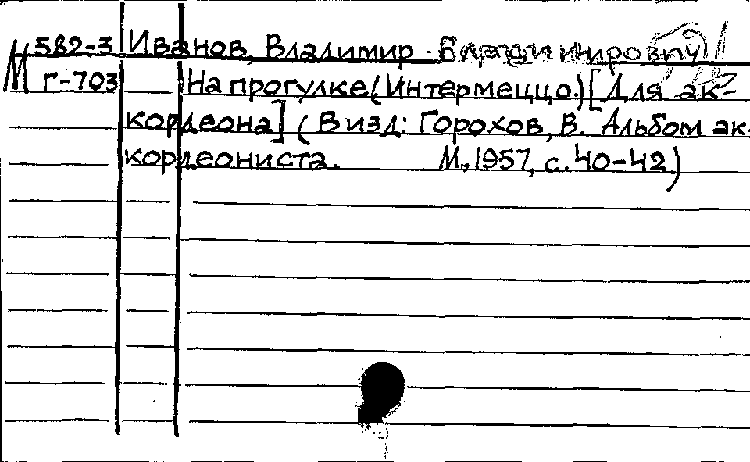 М 582-3 Иванов, Владимир Владимирович
Г-703 На прогулке (Интермеццо) [Для ак-
кордеона] (В изд: Горохов, В. Альбом ак-
кордеониста. М, 1957, с. 40-42)